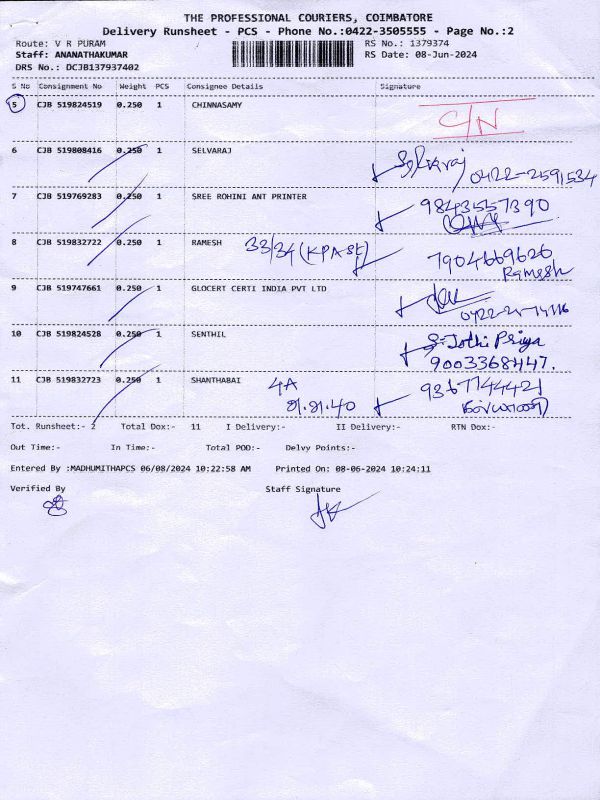 THE PROFESSIONAL COURIERS, COIMBATORE
Delivery Runsheet - PCS - Phone No.:0422-3505555 - Page No.:2
Route: V R PURAM RS No.: 1379374
Staff: ANANATHAKUMAR RS Date: 08-Jun-2024
DRS No.: DCJB137937402
S No Consignment No Weight PCS Consignee Details Signature
5 CJB 519824519 0.250 1 CHINNASAMY
C/N
6 CJB 519808416 0.250 1 SELVARAJ Selvaraj
0422-2591534
7 CJB 519769283 0.250 1 SREE ROHINI ANT PRINTER 9843557390
8 CJB 519832722 0.250 1 RAMESH 33/34 (KPA St) 7904669626
Ramesh
9 CJB 519747661 0.250 1 GLOCERT CERTI INDIA PVT LTD
10 CJB 519824528 0.250 1 SENTHIL S. Jothi Priya
9003368447.
11 CJB 519832723 0.250 1 SHANTHABAI 4A 9367744421
Tot. Runsheet:- 2 Total Dox:- 11 I Delivery:- II Delivery:- RTN Dox:-
Out Time:- In Time:- Total POD:- Delvy Points:-
Entered By :MADHUMITHAPCS 06/08/2024 10:22:58 AM Printed On: 08-06-2024 10:24:11
Verified By Staff Signature